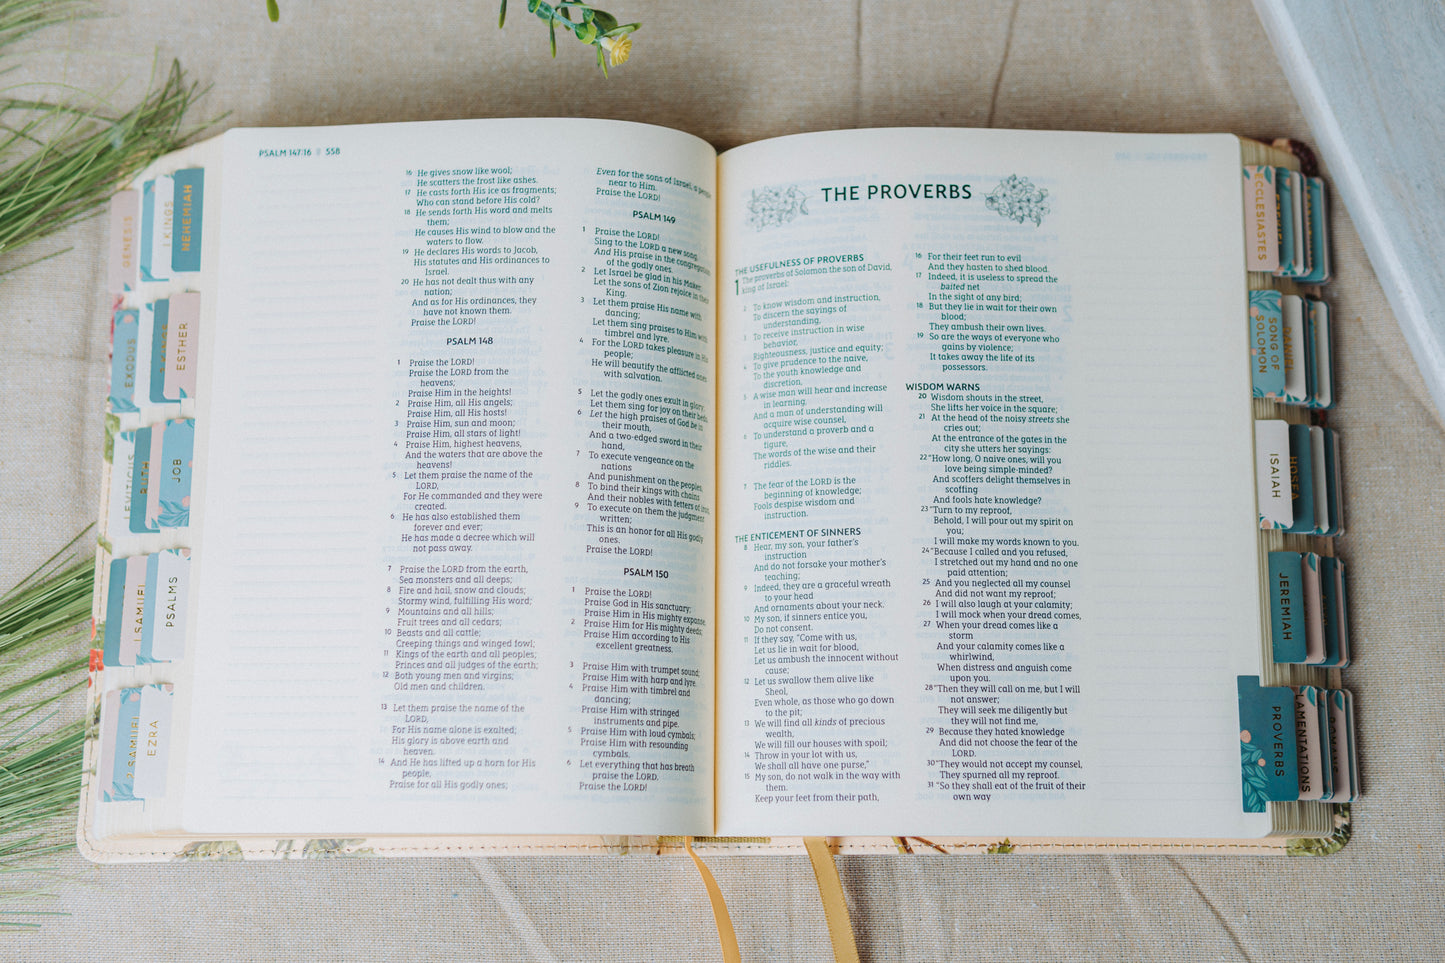 PSALM 147:16 558
16 He gives snow like wool;
He scatters the frost like ashes.
17 He casts forth His ice as fragments;
Who can stand before His cold?
18 He sends forth His word and melts
them;
He causes His wind to blow and the
waters to flow.
19 He declares His words to Jacob,
His statutes and His ordinances to
Israel.
20 He has not dealt thus with any
nation;
And as for His ordinances, they
have not known them.
Praise the LORD!
PSALM 148
1 Praise the LORD!
Praise the LORD from the
heavens;
Praise Him in the heights!
2 Praise Him, all His angels;
Praise Him, all His hosts!
3 Praise Him, sun and moon;
Praise Him, all stars of light!
4 Praise Him, highest heavens,
And the waters that are above the
heavens!
5 Let them praise the name of the
LORD,
For He commanded and they were
created.
6 He has also established them
forever and ever;
He has made a decree which will
not pass away.
7 Praise the LORD from the earth,
Sea monsters and all deeps;
8 Fire and hail, snow and clouds;
Stormy wind, fulfilling His word;
9 Mountains and all hills;
Fruit trees and all cedars;
10 Beasts and all cattle;
Creeping things and winged fowl;
11 Kings of the earth and all peoples;
Princes and all judges of the earth;
12 Both young men and virgins;
Old men and children.
13 Let them praise the name of the
LORD,
For His name alone is exalted;
His glory is above earth and
heaven.
14 And He has lifted up a horn for His
people,
Praise for all His godly ones;
Even for the sons of Israel, a people
near to Him.
Praise the LORD!
PSALM 149
1 Praise the LORD!
Sing to the LORD a new song,
And His praise in the congregation
of the godly ones.
2 Let Israel be glad in his Maker;
Let the sons of Zion rejoice in their
King.
3 Let them praise His name with
dancing;
Let them sing praises to Him with
timbrel and lyre.
4 For the LORD takes pleasure in His
people;
He will beautify the afflicted ones
with salvation.
5 Let the godly ones exult in glory;
Let them sing for joy on their beds.
6 Let the high praises of God be in
their mouth,
And a two-edged sword in their
hand,
7 To execute vengeance on the
nations
And punishment on the peoples,
8 To bind their kings with chains
And their nobles with fetters of iron,
9 To execute on them the judgment
written;
This is an honor for all His godly
ones.
Praise the LORD!
PSALM 150
1 Praise the LORD!
Praise God in His sanctuary;
Praise Him in His mighty expanse.
2 Praise Him for His mighty deeds;
Praise Him according to His
excellent greatness.
3 Praise Him with trumpet sound;
Praise Him with harp and lyre.
4 Praise Him with timbrel and
dancing;
Praise Him with stringed
instruments and pipe.
5 Praise Him with loud cymbals;
Praise Him with resounding
cymbals.
6 Let everything that has breath
praise the LORD.
Praise the LORD!
THE PROVERBS
THE USEFULNESS OF PROVERBS
1 The proverbs of Solomon the son of David,
king of Israel:
2 To know wisdom and instruction,
To discern the sayings of
understanding,
3 To receive instruction in wise
behavior,
Righteousness, justice and equity;
4 To give prudence to the naive,
To the youth knowledge and
discretion,
5 A wise man will hear and increase
in learning,
And a man of understanding will
acquire wise counsel,
6 To understand a proverb and a
figure,
The words of the wise and their
riddles.
7 The fear of the LORD is the
beginning of knowledge;
Fools despise wisdom and
instruction.
THE ENTICEMENT OF SINNERS
8 Hear, my son, your father's
instruction
And do not forsake your mother's
teaching;
9 Indeed, they are a graceful wreath
to your head
And ornaments about your neck.
10 My son, if sinners entice you,
Do not consent.
11 If they say, "Come with us,
Let us lie in wait for blood,
Let us ambush the innocent without
cause;
12 Let us swallow them alive like
Sheol,
Even whole, as those who go down
to the pit;
13 We will find all kinds of precious
wealth,
We will fill our houses with spoil;
14 Throw in your lot with us,
We shall all have one purse,"
15 My son, do not walk in the way with
them.
Keep your feet from their path,
16 For their feet run to evil
And they hasten to shed blood.
17 Indeed, it is useless to spread the
baited net
In the sight of any bird;
18 But they lie in wait for their own
blood;
They ambush their own lives.
19 So are the ways of everyone who
gains by violence;
It takes away the life of its
possessors.
WISDOM WARNS
20 Wisdom shouts in the street,
She lifts her voice in the square;
21 At the head of the noisy streets she
cries out;
At the entrance of the gates in the
city she utters her sayings:
22 "How long, O naive ones, will you
love being simple-minded?
And scoffers delight themselves in
scoffing
And fools hate knowledge?
23 "Turn to my reproof,
Behold, I will pour out my spirit on
you;
I will make my words known to you.
24 "Because I called and you refused,
I stretched out my hand and no one
paid attention;
25 And you neglected all my counsel
And did not want my reproof;
26 I will also laugh at your calamity;
I will mock when your dread comes,
27 When your dread comes like a
storm
And your calamity comes like a
whirlwind,
When distress and anguish come
upon you.
28 "Then they will call on me, but I will
not answer;
They will seek me diligently but
they will not find me,
29 Because they hated knowledge
And did not choose the fear of the
LORD.
30 "They would not accept my counsel,
They spurned all my reproof.
31 "So they shall eat of the fruit of their
own way
GENESIS
I KINGS
NEHEMIAH
EXODUS
ESTHER
LEVITICUS
RUTH
JOB
I SAMUEL
PSALMS
2 SAMUEL
EZRA
ECCLESIASTES
SONG OF
SOLOMON
DANIEL
ISAIAH
HOSEA
JEREMIAH
PROVERBS
LAMENTATIONS
ROMANS